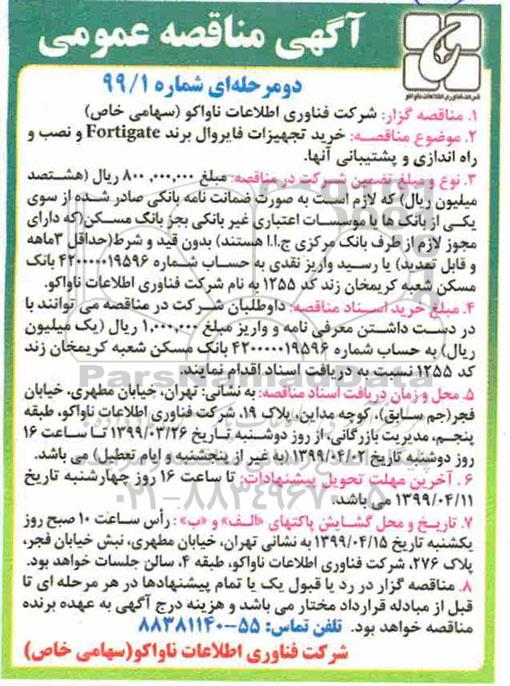 آگهی مناقصه عمومی
شرکت فناوری اطلاعات ناواکو
دومرحله‌ای شماره ۹۹/۱
۱. مناقصه گزار: شرکت فناوری اطلاعات ناواکو (سهامی خاص)
۲. موضوع مناقصه: خرید تجهیزات فایروال برند Fortigate و نصب و
راه اندازی و پشتیبانی آنها.
۳. نوع و مبلغ تضمین شرکت در مناقصه: مبلغ ۸۰۰,۰۰۰,۰۰۰ ریال (هشتصد
میلیون ریال) که لازم است به صورت ضمانت نامه بانکی صادر شده از سوی
یکی از بانک ها یا موسسات اعتباری غیر بانکی بجز بانک مسکن(که دارای
مجوز لازم از طرف بانک مرکزی ج.ا.ا هستند) بدون قید و شرط(حداقل ۳ماهه
و قابل تمدید) یا رسید واریز نقدی به حساب شماره ۴۲۰۰۰۰۰۱۹۵۹۶ بانک
مسکن شعبه کریمخان زند کد ۱۲۵۵ به نام شرکت فناوری اطلاعات ناواکو.
۴. مبلغ خرید اسناد مناقصه: داوطلبان شرکت در مناقصه می توانند با
در دست داشتن معرفی نامه و واریز مبلغ ۱,۰۰۰,۰۰۰ ریال (یک میلیون
ریال) به حساب شماره ۴۲۰۰۰۰۰۱۹۵۹۶ بانک مسکن شعبه کریمخان زند
کد ۱۲۵۵ نسبت به دریافت اسناد اقدام نمایند.
ParsNamadData
۵. محل و زمان دریافت اسناد مناقصه: به نشانی: تهران، خیابان مطهری، خیابان
فجر(جم سابق)، کوچه مداین، پلاک ۱۹، شرکت فناوری اطلاعات ناواکو، طبقه
پنجم، مدیریت بازرگانی، از روز دوشنبه تاریخ ۱۳۹۹/۰۳/۲۶ تا ساعت ۱۶
روز دوشنبه تاریخ ۱۳۹۹/۰۴/۰۲ (به غیر از پنجشنبه و ایام تعطیل) می باشد.
۶. آخرین مهلت تحویل پیشنهادات: تا ساعت ۱۶ روز چهارشنبه تاریخ
۱۳۹۹/۰۴/۱۱ می باشد.
۰۲۱-۸۸۳۴۹۶۷۰-۵
۷. تاریخ و محل گشایش پاکتهای «الف» و «ب»: رأس ساعت ۱۰ صبح روز
یکشنبه تاریخ ۱۳۹۹/۰۴/۱۵ به نشانی تهران، خیابان مطهری، نبش خیابان فجر،
پلاک ۲۷۶، شرکت فناوری اطلاعات ناواکو، طبقه ۴، سالن جلسات خواهد بود.
۸. مناقصه گزار در رد یا قبول یک یا تمام پیشنهادها در هر مرحله ای تا
قبل از مبادله قرارداد مختار می باشد و هزینه درج آگهی به عهده برنده
مناقصه خواهد بود. تلفن تماس: ۵۵-۸۸۳۸۱۱۴۰
شرکت فناوری اطلاعات ناواکو(سهامی خاص)